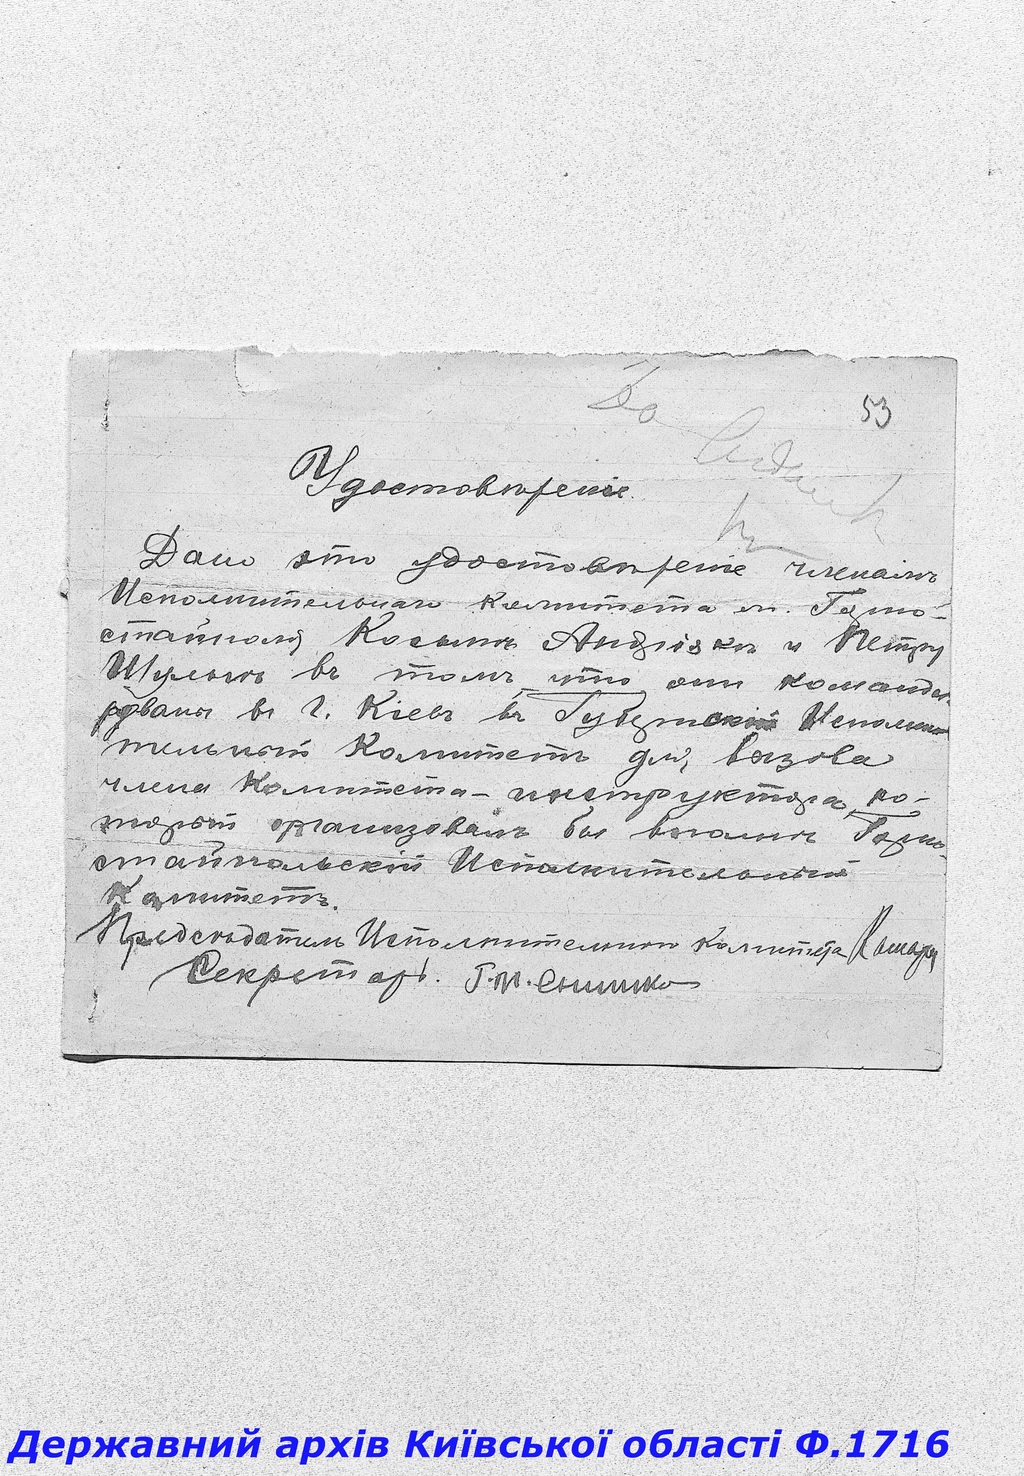 53
Удостовѣреніе.
Дано это удостовѣреніе членамъ
Исполнительнаго Комитета м. Горно-
стайполя Косьмѣ Андрійкѣ и Петру
Шульгѣ въ томъ, что они команди-
рованы въ г. Кіевъ въ Губернскій Исполни-
тельный Комитетъ для вызова
члена Комитета-инструктора, ко-
торый организовалъ бы волость Горно-
стайпольскій Исполнительный
Комитетъ.
Предсѣдатель Исполнительнаго Комитета
Секретарь. Г. М.
Державний архів Київської області Ф.1716